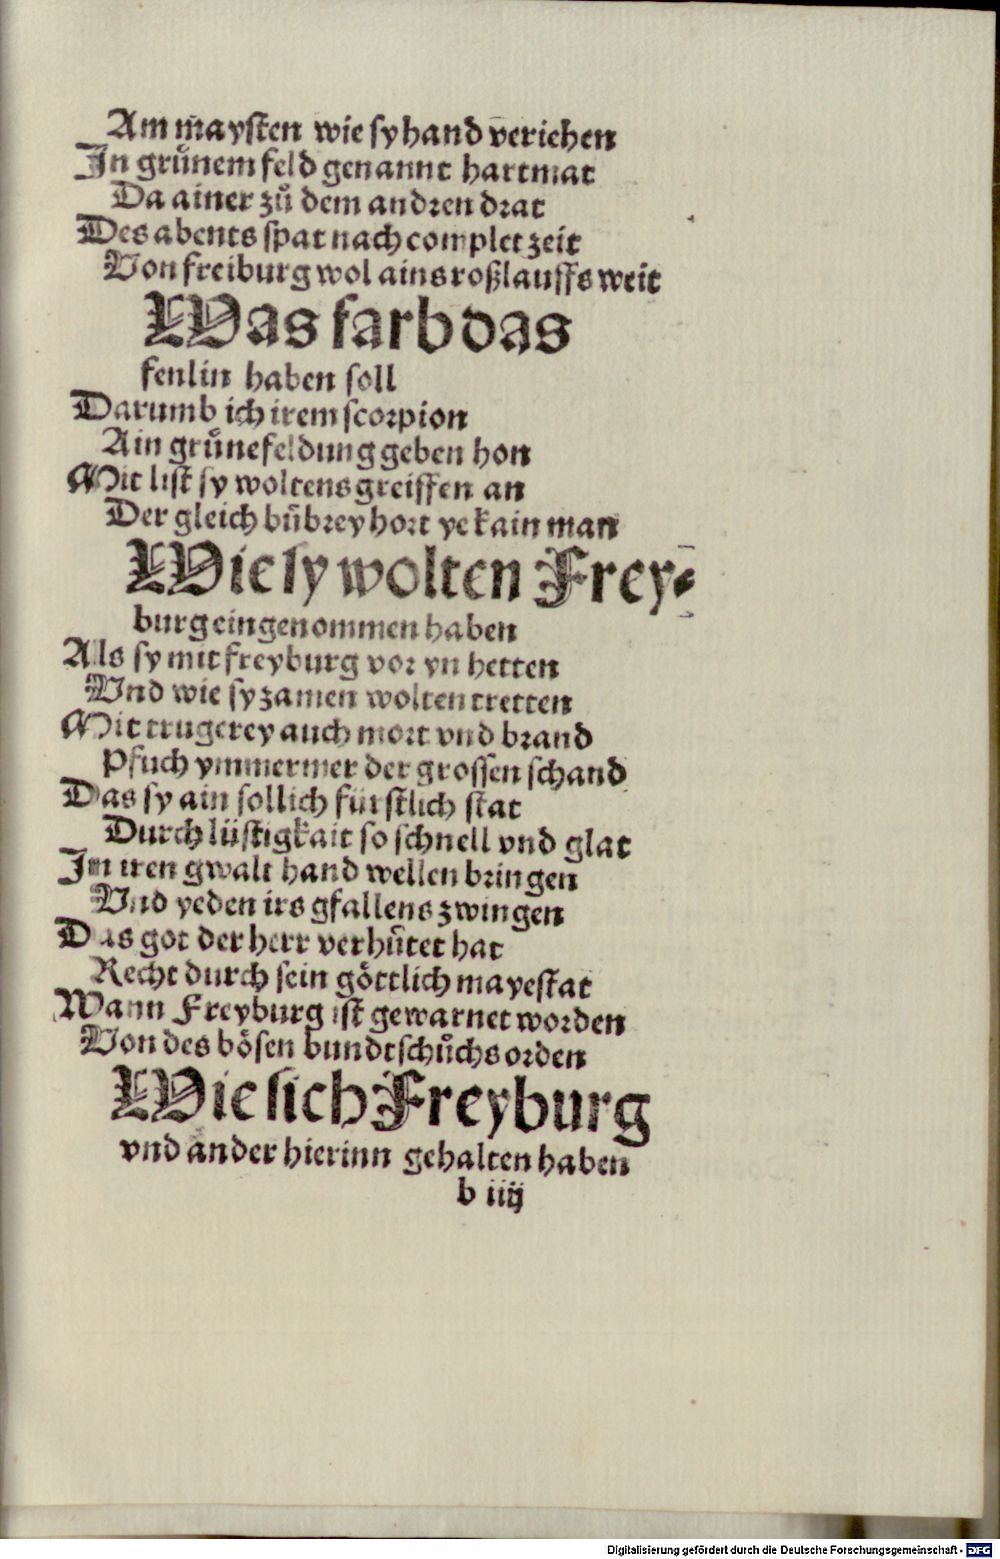 Am maysten wie sy hand veriehen
In grůnem feld genannt hartmat
Da ainer zů dem andren drat
Des abents spat nach complet zeit
Von freiburg wol ains roßlauffs weit
Was farb das
fenlin haben soll
Darumb ich irem scorpion
Ain grůne feldung geben hon
Mit list sy woltens greiffen an
Der gleich bůbrey hort ye kain man
Wie sy wolten Frey-
burg eingenommen haben
Als sy mit freyburg vor yn hetten
Vnd wie sy zamen wolten tretten
Mit trugerey auch mort vnd brand
Pfuch ymmermer der grossen schand
Das sy ain sollich fürstlich stat
Durch lüstigkait so schnell vnd glat
In iren gwalt hand wellen bringen
Vnd yeden irs gfallens zwingen
Das got der herr verhůtet hat
Recht durch sein göttlich mayestat
Wann Freyburg ist gewarnet worden
Von des bösen bundtschůchs orden
Wie sich Freyburg
vnd ander hierinn gehalten haben
b iiij
Digitalisierung gefördert durch die Deutsche Forschungsgemeinschaft - DFG